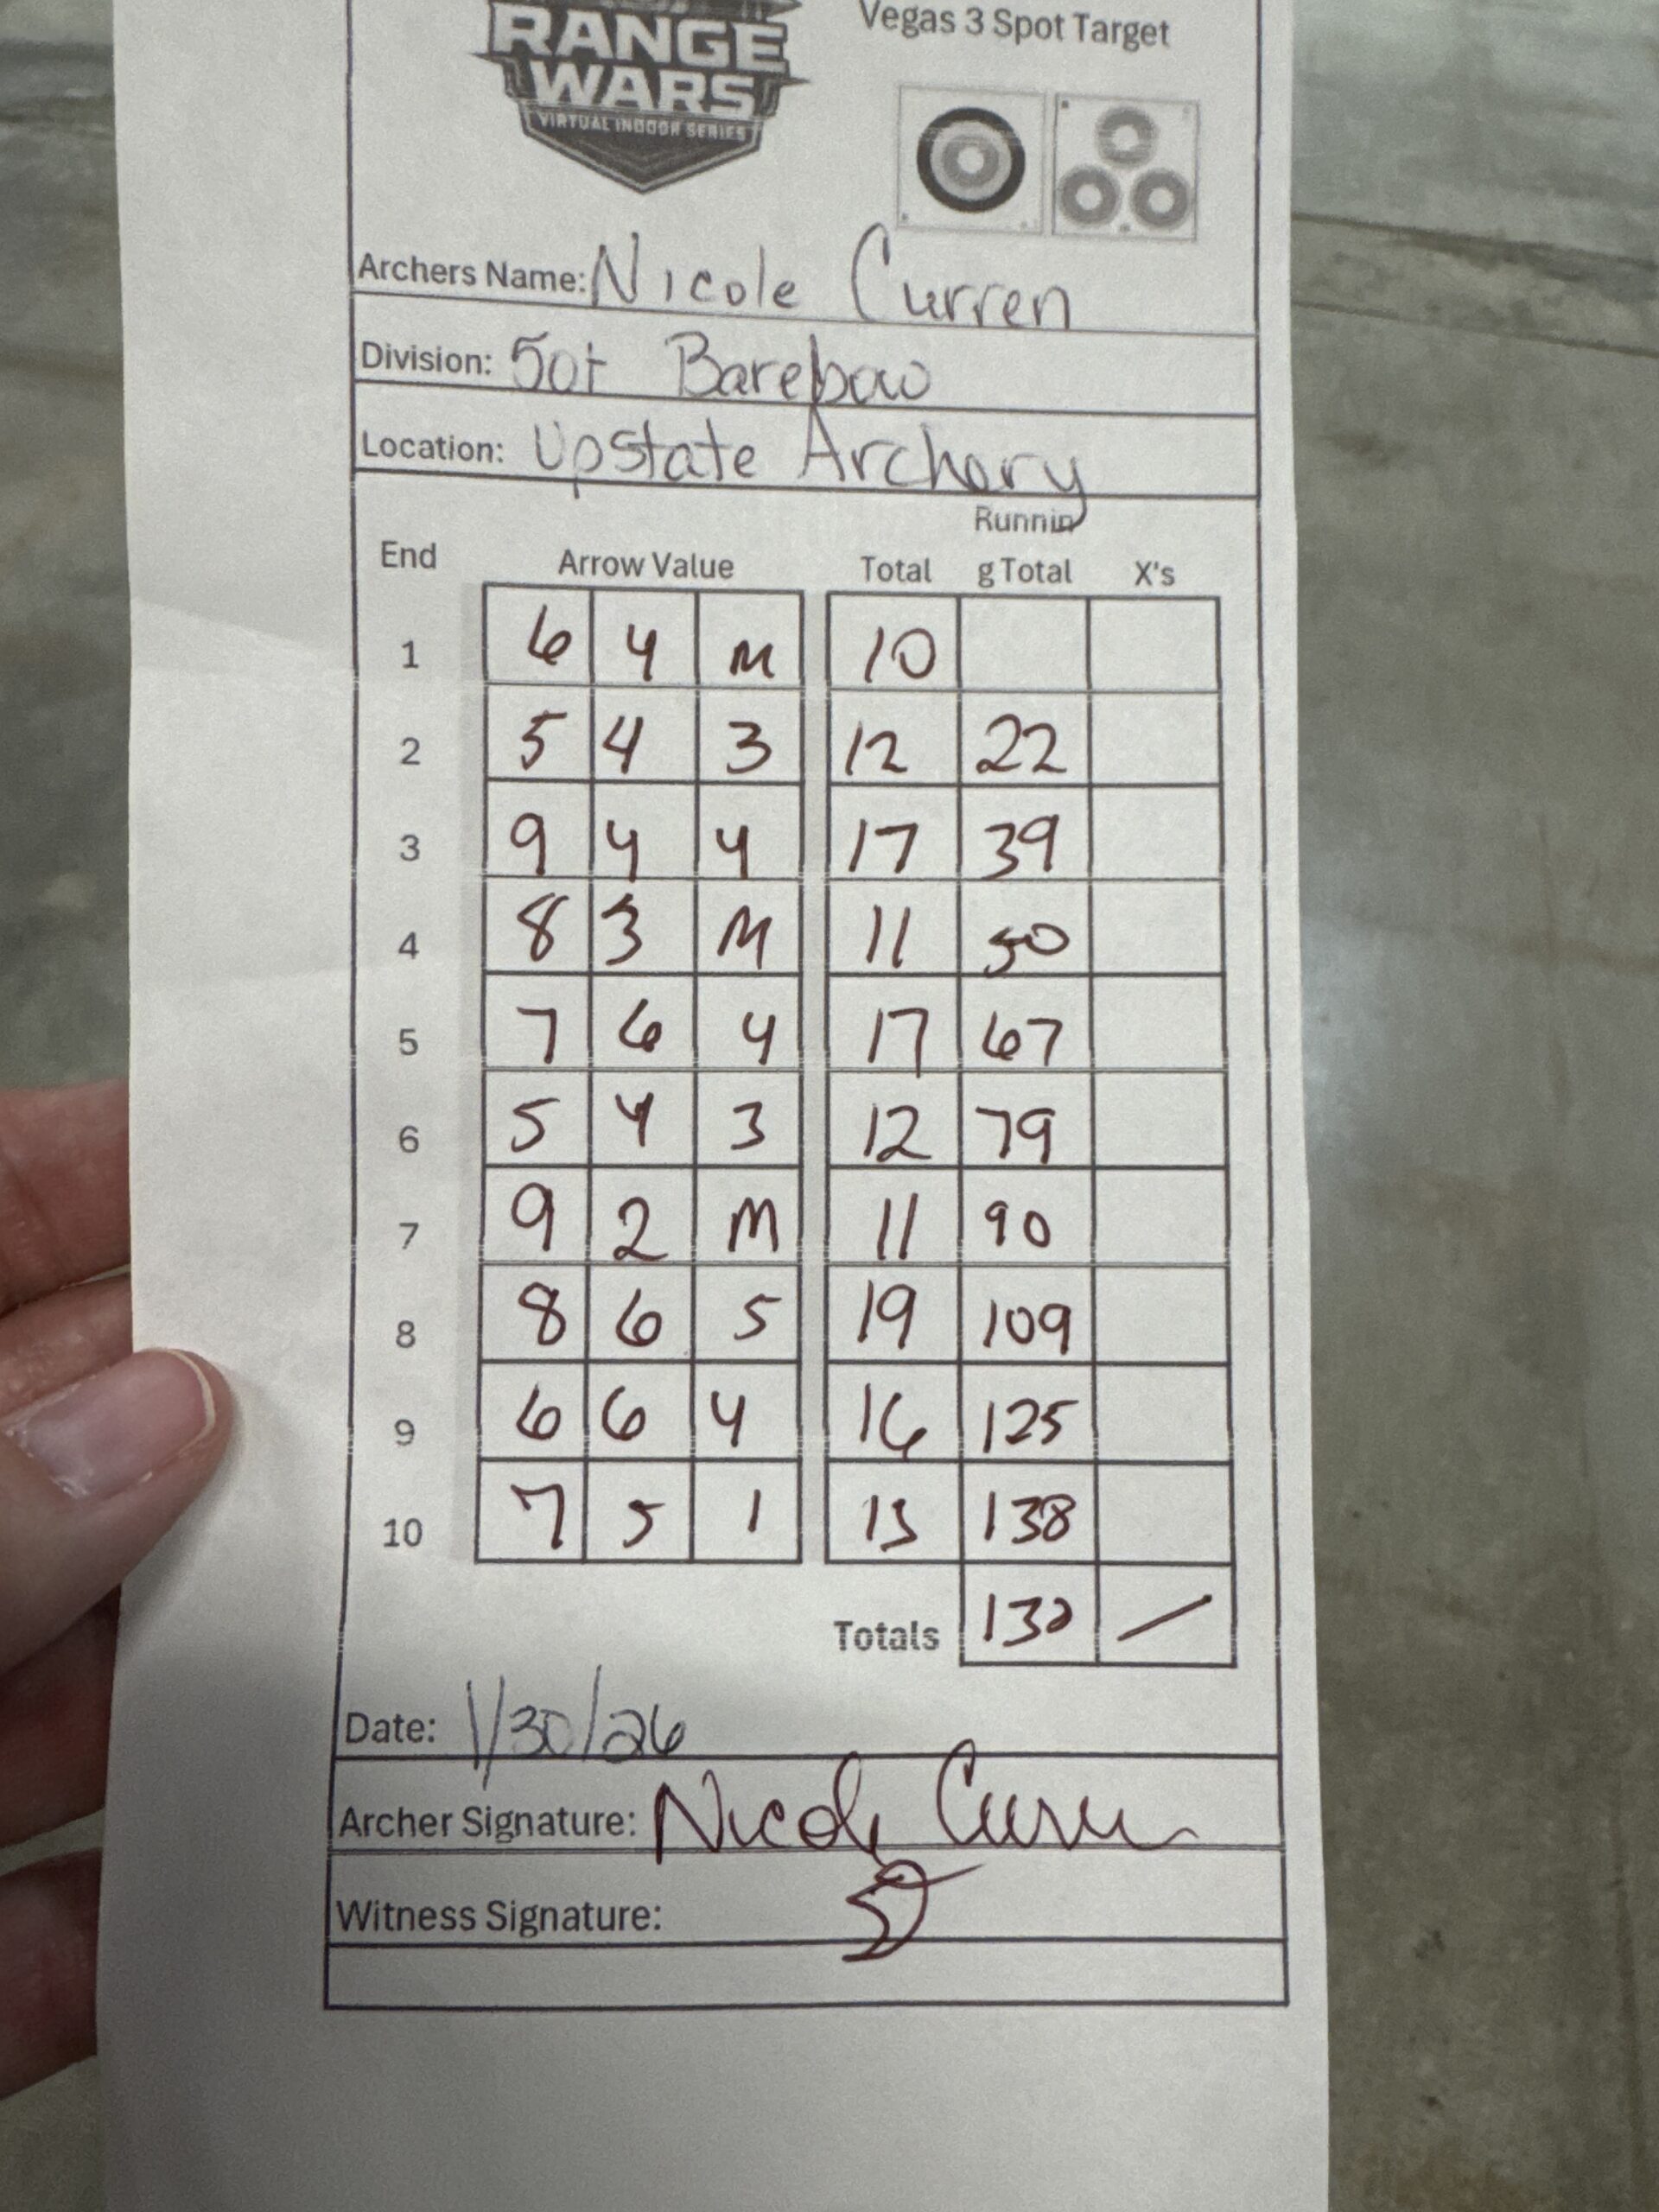 RANGE
WARS
VIRTUAL INDOOR SERIES
Vegas 3 Spot Target
Archers Name: Nicole Curren
Division: 50+ Barebow
Location: Upstate Archery
End Arrow Value Total Runnin
g Total X's
1 6 4 M 10
2 5 4 3 12 22
3 9 4 4 17 39
4 8 3 M 11 50
5 7 6 4 17 67
6 5 4 3 12 79
7 9 2 M 11 90
8 8 6 5 19 109
9 6 6 4 16 125
10 7 5 1 13 138
Totals 138 /
Date: 1/30/26
Archer Signature: Nicole Curren
Witness Signature: